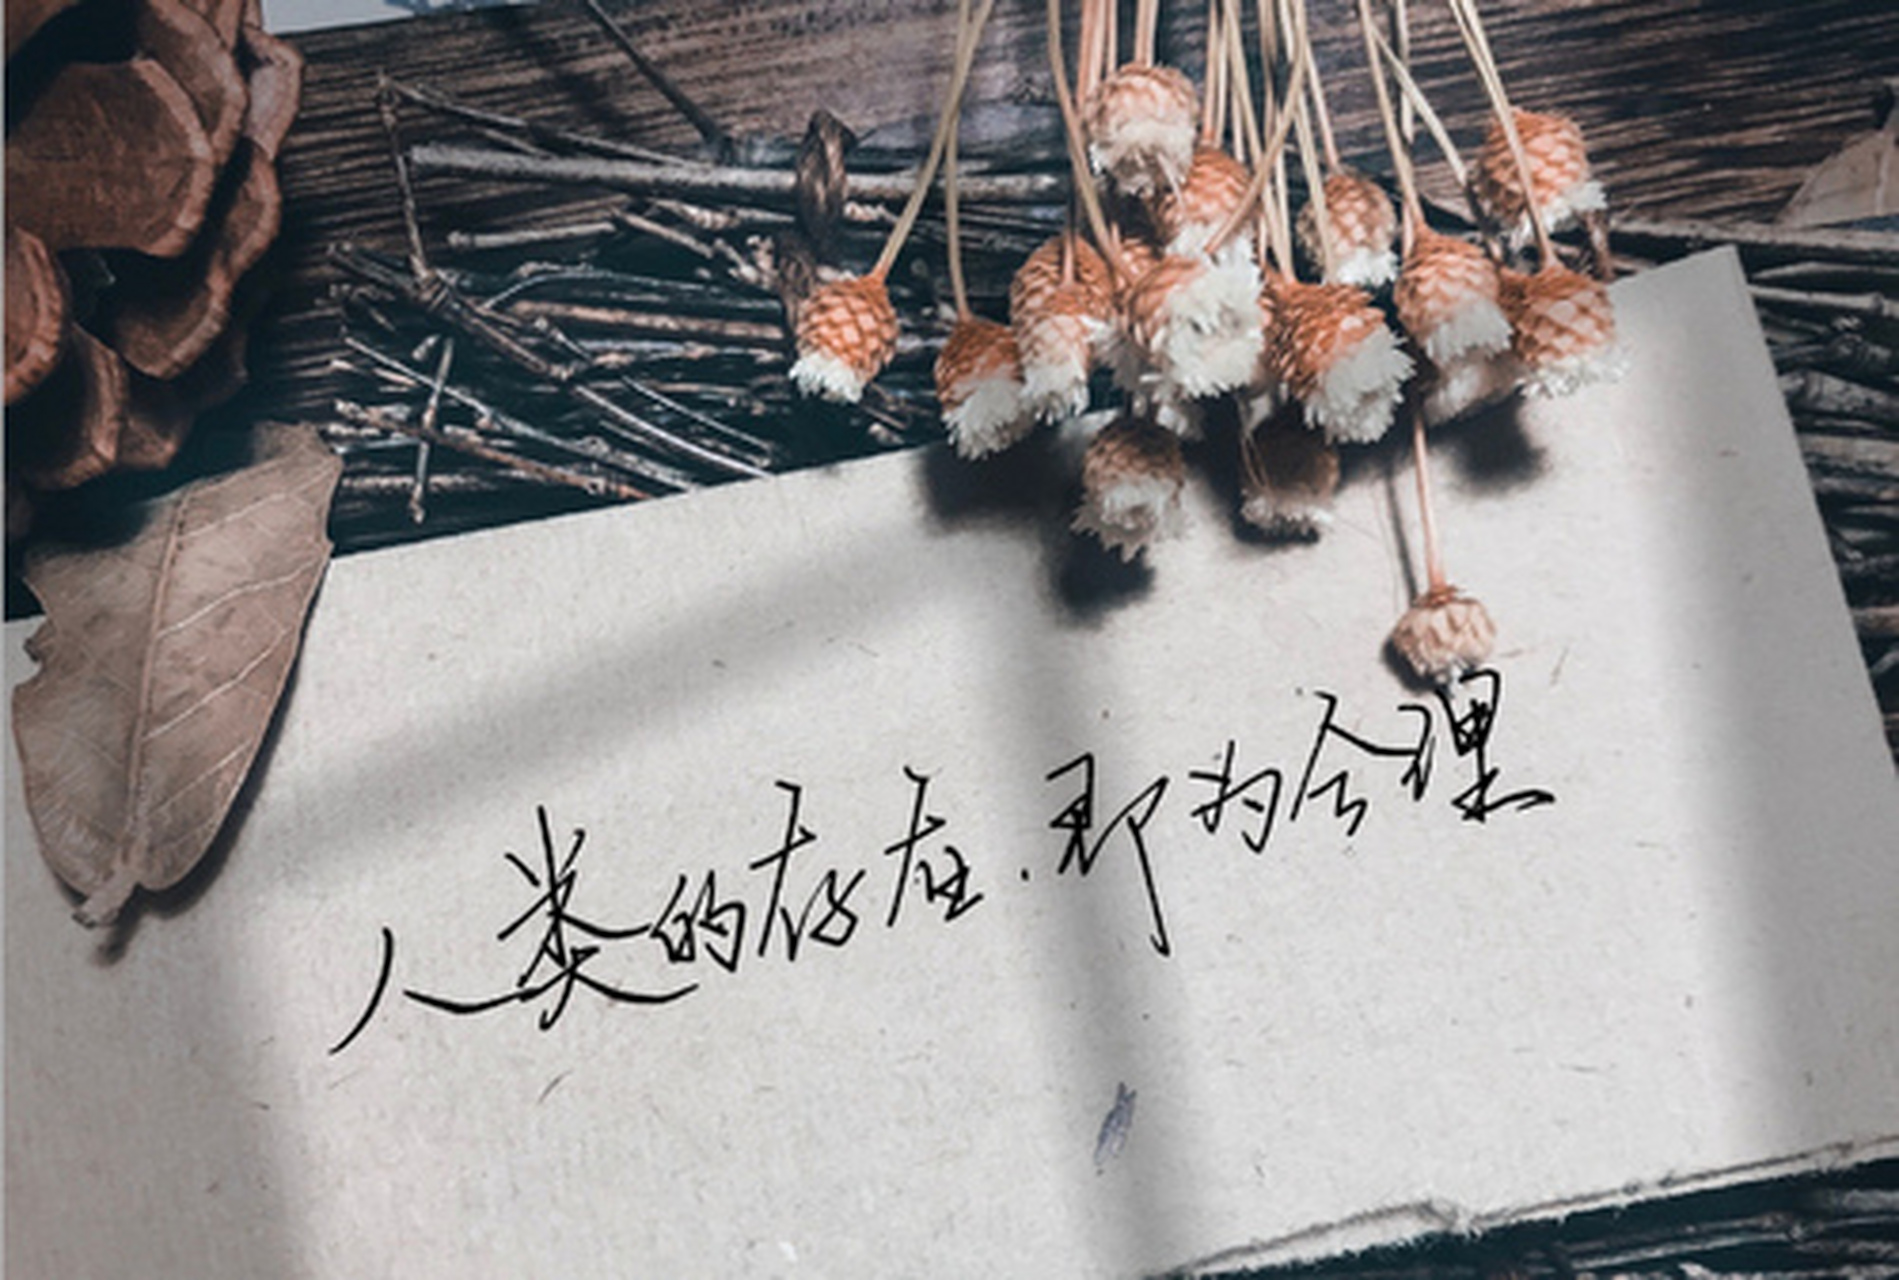 人类的存在.即为合理